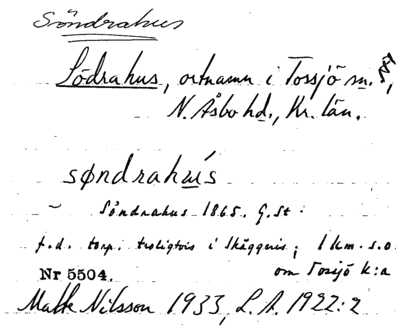 Söndrahus
Södrahus, ortnamn i Tossjö sn.,
N. Åsbo hd., Kr. län.
søndrahus
Söndrahus 1865. G.St.
f.d. torp. troligtvis i Skäggeris; 1 km. s.o.
om Tossjö k:a
Nr 5504.
Nilsson 1933, L.A. 1922:2